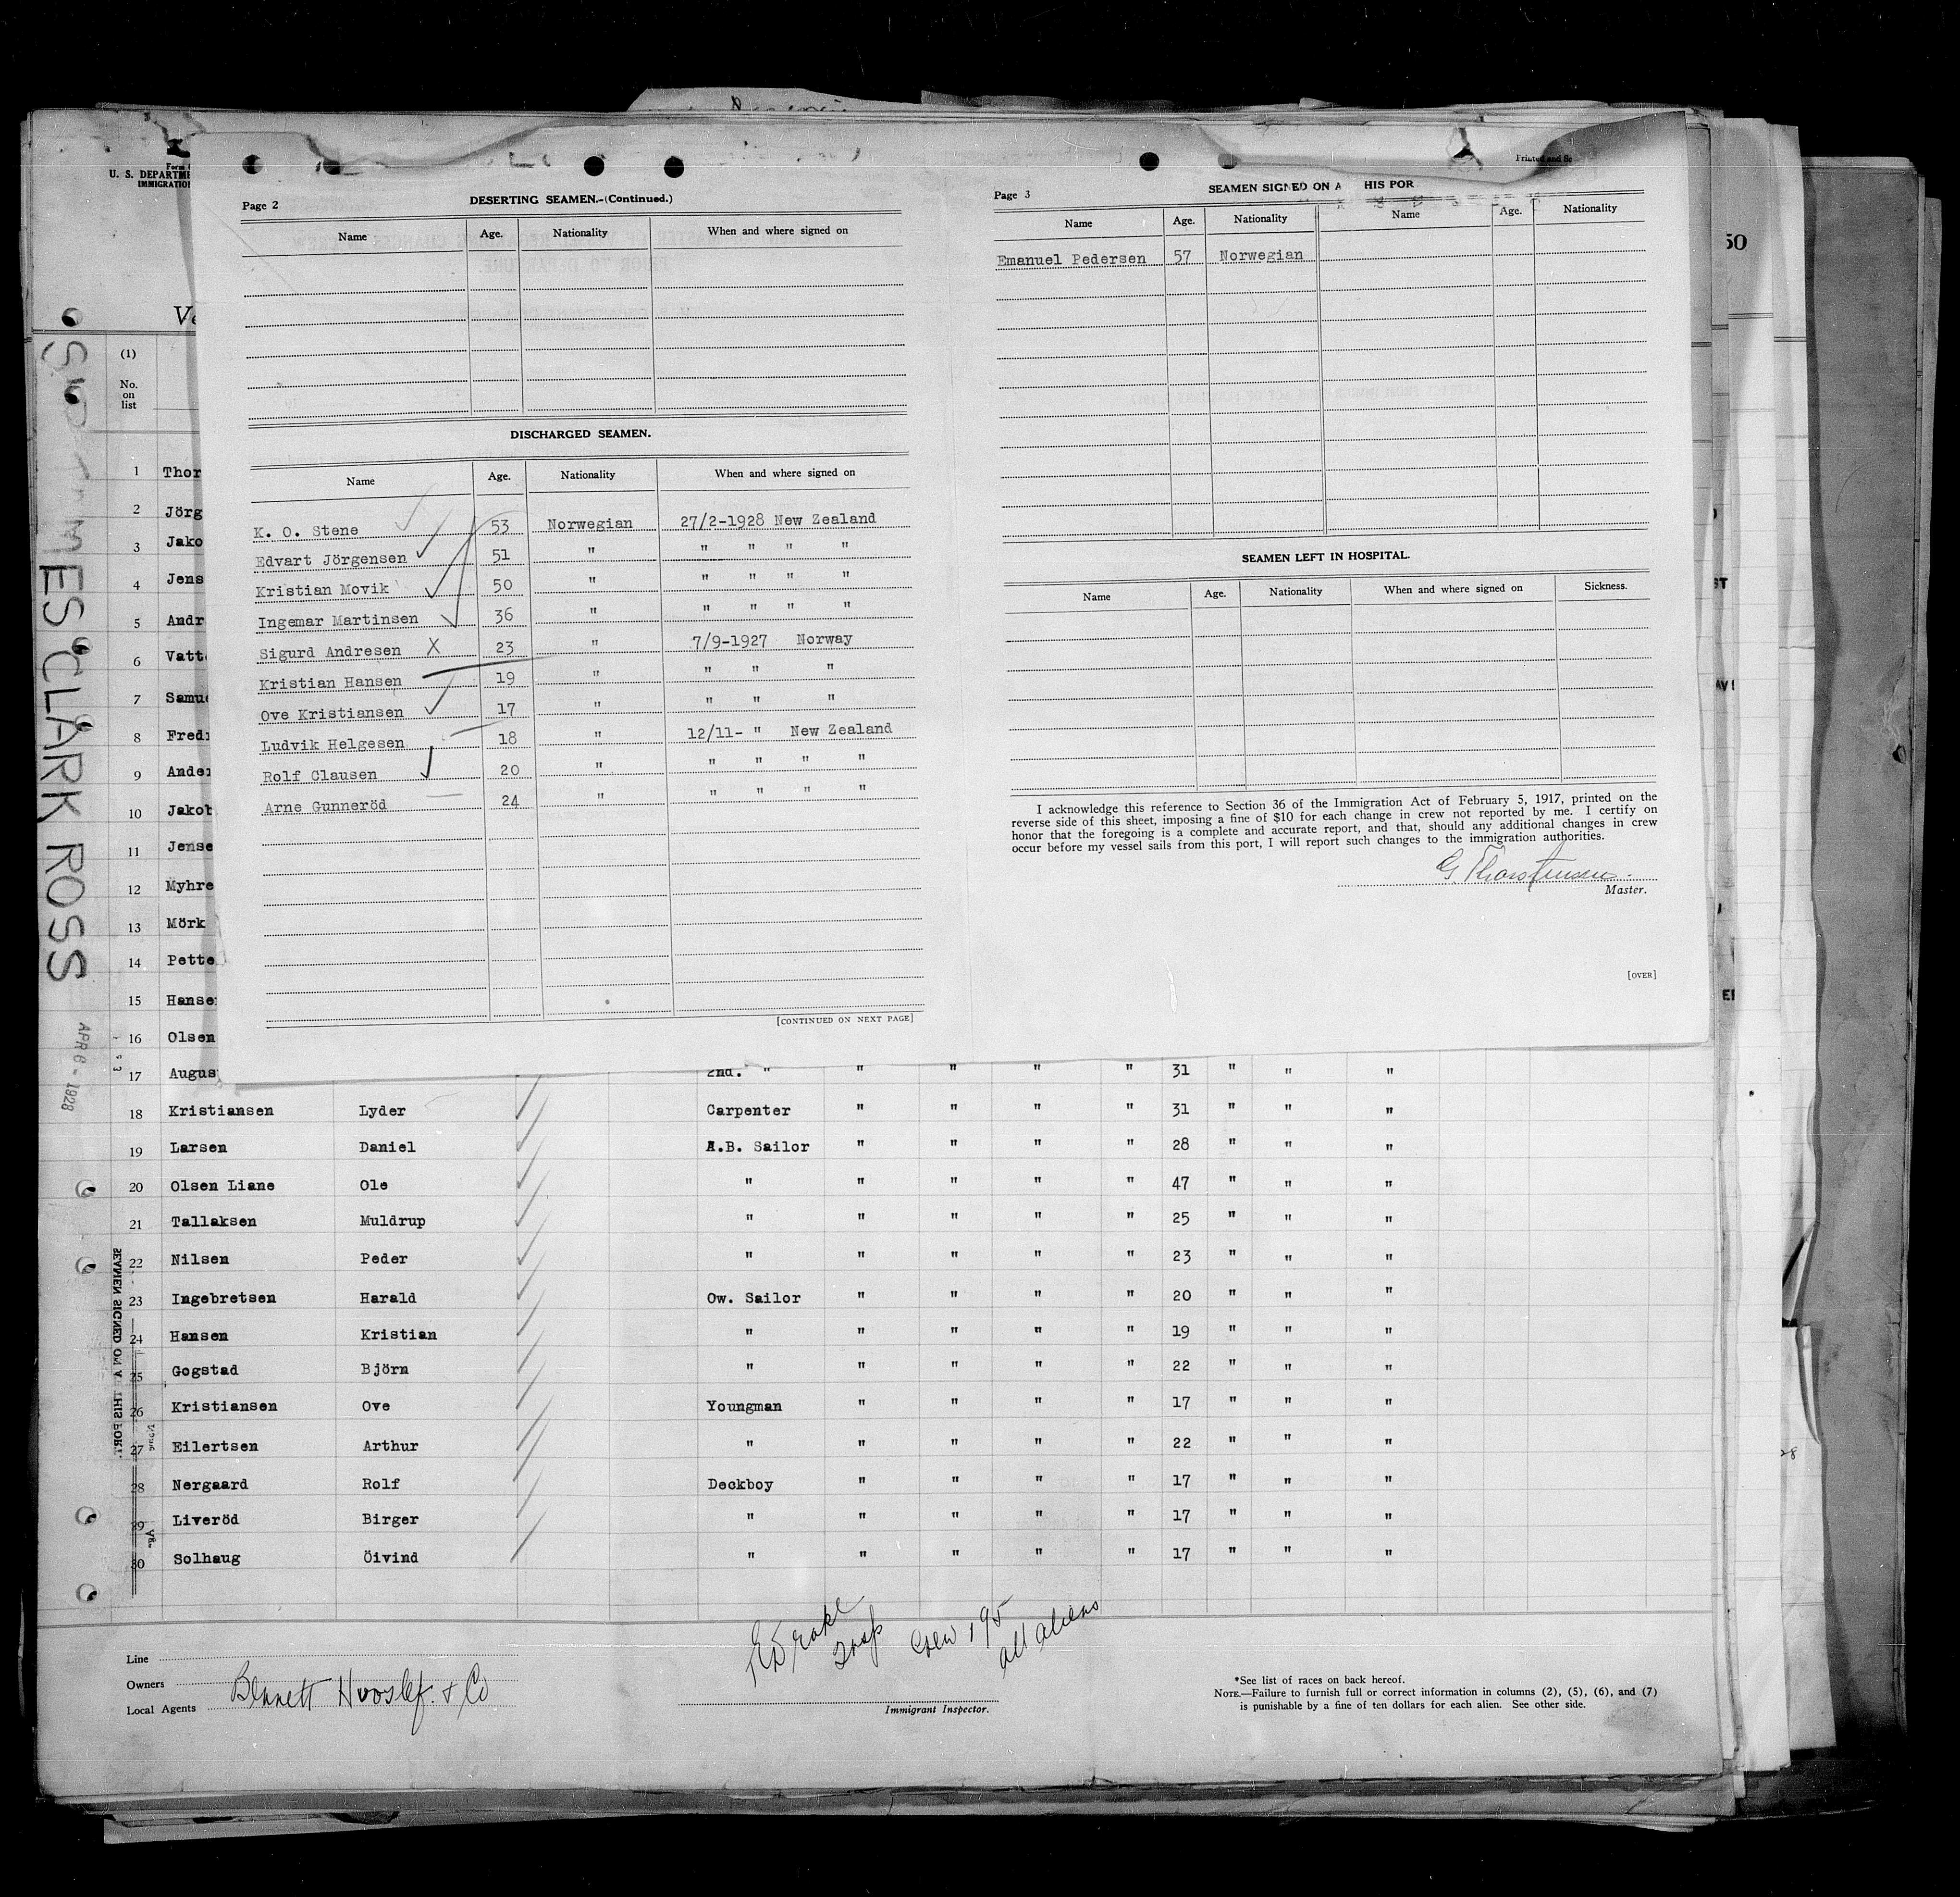 U. S. DEPARTME
IMMIGRATION
Page 2
DESERTING SEAMEN.-(Continued.)
Name Age. Nationality When and where signed on
DISCHARGED SEAMEN.
Name Age. Nationality When and where signed on
K. O. Stene 53 Norwegian 27/2-1928 New Zealand
Edvart Jörgensen 51 " " " " "
Kristian Movik 50 " " " " "
Ingemar Martinsen 36 " " " " "
Sigurd Andresen X 23 " 7/9-1927 Norway
Kristian Hansen 19 " " " "
Ove Kristiansen 17 " " " "
Ludvik Helgesen 18 " 12/11- " New Zealand
Rolf Clausen 20 " " " " "
Arne Gunneröd 24 " " " " "
[CONTINUED ON NEXT PAGE]
Page 3
SEAMEN SIGNED ON A HIS POR
Name Age. Nationality Name Age. Nationality
Emanuel Pedersen 57 Norwegian
SEAMEN LEFT IN HOSPITAL.
Name Age. Nationality When and where signed on Sickness.
I acknowledge this reference to Section 36 of the Immigration Act of February 5, 1917, printed on the
reverse side of this sheet, imposing a fine of $10 for each change in crew not reported by me. I certify on
honor that the foregoing is a complete and accurate report, and that, should any additional changes in crew
occur before my vessel sails from this port, I will report such changes to the immigration authorities.
G. Thorstensen.
Master.
[OVER]
50
Ve
(1)
No.
on
list
1 Thor
2 Jörg
3 Jako
4 Jens
5 Andr
6 Vatt
7 Samu
8 Fred
9 Ander
10 Jakob
11 Jense
12 Myhre
13 Mörk
14 Pette
15 Hanse
16 Olsen
17 Augus 2nd. " " " " " 31 " " "
18 Kristiansen Lyder Carpenter " " " " 31 " " "
19 Larsen Daniel A.B. Sailor " " " " 28 " " "
20 Olsen Liane Ole " " " " " 47 " " "
21 Tallaksen Muldrup " " " " " 25 " " "
22 Nilsen Peder " " " " " 23 " " "
23 Ingebretsen Harald Ow. Sailor " " " " 20 " " "
24 Hansen Kristian " " " " " 19 " " "
25 Gogstad Björn " " " " " 22 " " "
26 Kristiansen Ove Youngman " " " " 17 " " "
27 Eilertsen Arthur " " " " " 22 " " "
28 Nergaard Rolf Deckboy " " " " 17 " " "
29 Liveröd Birger " " " " " 17 " " "
30 Solhaug Öivind " " " " " 17 " " "
MES CLARK ROSS
APR 6 - 1928
SEAMEN SIGNED ON A THIS PORT.
Line
Owners
Local Agents
Bennett Hvoslef & Co
Insp
Crew 195
all aliens
Immigrant Inspector.
*See list of races on back hereof.
NOTE.—Failure to furnish full or correct information in columns (2), (5), (6), and (7)
is punishable by a fine of ten dollars for each alien. See other side.